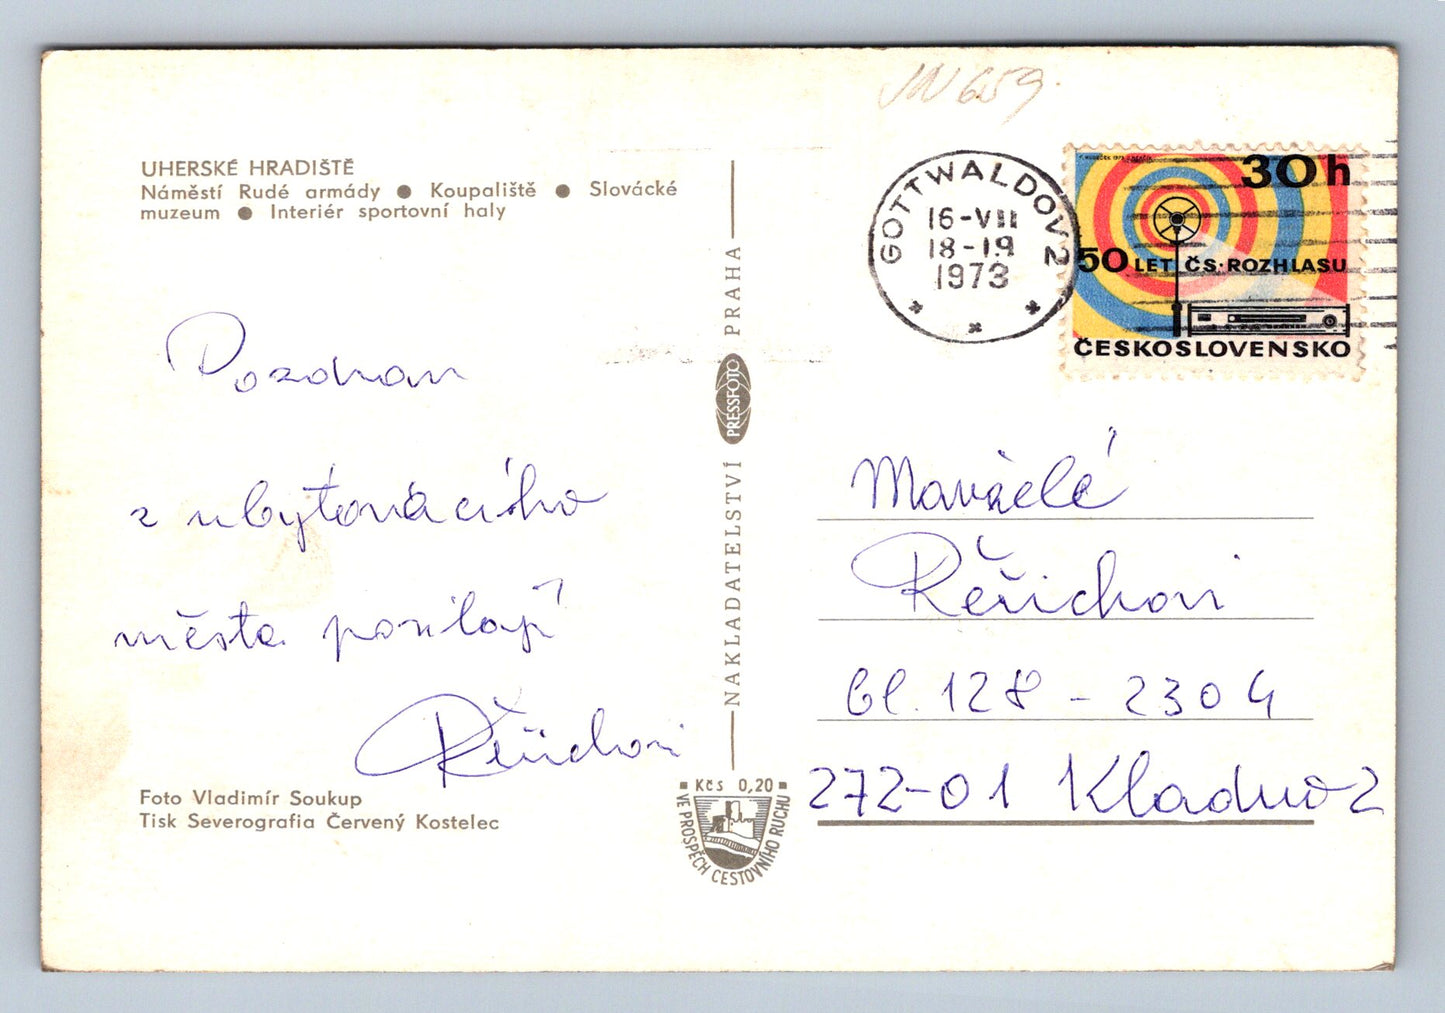 UHERSKÉ HRADIŠTĚ
Náměstí Rudé armády ● Koupaliště ● Slovácké
muzeum ● Interiér sportovní haly
Pozdrav
z ubytovacího
města posílají
Řeřichovi
Foto Vladimír Soukup
Tisk Severografia Červený Kostelec
NAKLADATELSTVÍ PRESSFOTO PRAHA
Kčs 0,20
VE PROSPĚCH CESTOVNÍHO RUCHU
GOTTWALDOV 2
16-VII
18-19
1973
30h
50 LET ČS·ROZHLASU
ČESKOSLOVENSKO
Manželé
Řeřichovi
bl. 128 - 2304
272-01 Kladno 2